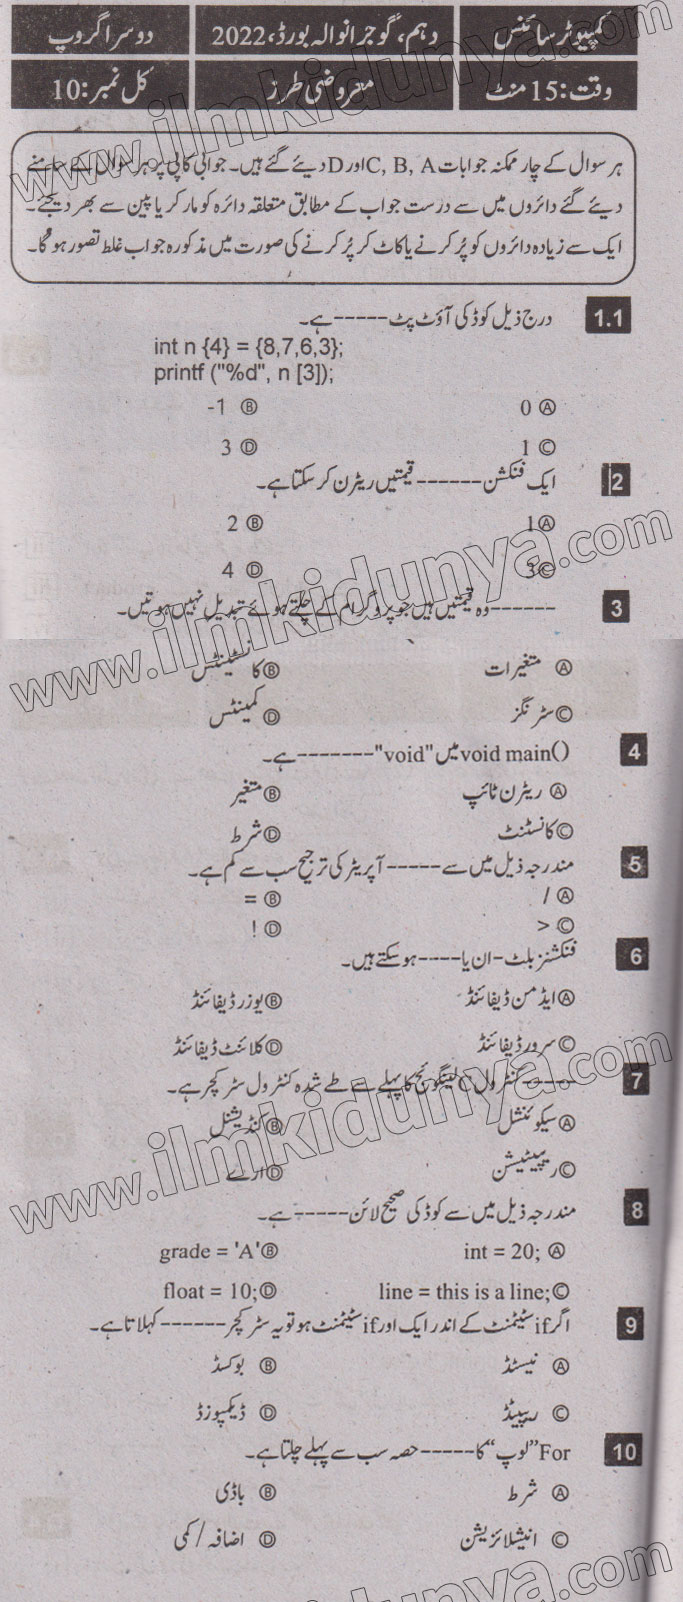 کمپیوٹر سائنس
دہم، گوجرانوالہ بورڈ، 2022
دوسرا گروپ
وقت: 15 منٹ
معروضی طرز
کل نمبر: 10
ہر سوال کے چار ممکنہ جوابات C, B, A اور D دیئے گئے ہیں۔ جوابی کاپی پر ہر سوال کے سامنے
دیئے گئے دائروں میں سے درست جواب کے مطابق متعلقہ دائرہ کو مارکر یا پین سے بھر دیجئے۔
ایک سے زیادہ دائروں کو پُر کرنے یا کاٹ کر پُر کرنے کی صورت میں مذکورہ جواب غلط تصور ہوگا۔
1.1 درج ذیل کوڈ کی آؤٹ پٹ ----- ہے۔
int n {4} = {8,7,6,3};
printf ("%d", n [3]);
Ⓐ 0 Ⓑ -1
Ⓒ 1 Ⓓ 3
2 ایک فنکشن ------ قیمتیں ریٹرن کر سکتا ہے۔
Ⓐ 1 Ⓑ 2
Ⓒ 3 Ⓓ 4
3 ------ وہ قیمتیں ہیں جو پروگرام کے چلتے ہوئے تبدیل نہیں ہوتیں۔
Ⓐ متغیرات Ⓑ کانسٹینٹس
Ⓒ سٹرنگز Ⓓ کمینٹس
4 void main() میں "void" ------- ہے۔
Ⓐ ریٹرن ٹائپ Ⓑ متغیر
Ⓒ کانسٹنٹ Ⓓ شرط
5 مندرجہ ذیل میں سے ----- آپریٹر کی ترجیح سب سے کم ہے۔
Ⓐ / Ⓑ =
Ⓒ > Ⓓ !
6 فنکشنز بلٹ-ان یا ---- ہو سکتے ہیں۔
Ⓐ ایڈمن ڈیفائنڈ Ⓑ یوزر ڈیفائنڈ
Ⓒ سرور ڈیفائنڈ Ⓓ کلائنٹ ڈیفائنڈ
7 ----- کنٹرول C لینگوئج کا پہلے سے طے شدہ کنٹرول سٹرکچر ہے۔
Ⓐ سیکوئنشل Ⓑ کنڈیشنل
Ⓒ ریپیٹیشن Ⓓ ارے
8 مندرجہ ذیل میں سے کوڈ کی صحیح لائن ----- ہے۔
Ⓐ int = 20; Ⓑ grade = 'A'
Ⓒ line = this is a line; Ⓓ float = 10;
9 اگر if سٹیٹمنٹ کے اندر ایک اور if سٹیٹمنٹ ہو تو یہ سٹرکچر ------ کہلاتا ہے۔
Ⓐ نیسٹڈ Ⓑ بوکسڈ
Ⓒ ریپیٹڈ Ⓓ ڈیکمپوزڈ
10 For ”لوپ“ کا ----- حصہ سب سے پہلے چلتا ہے۔
Ⓐ شرط Ⓑ باڈی
Ⓒ انیشلائزیشن Ⓓ اضافہ / کمی
www.ilmkidunya.com
www.ilmkidunya.com
www.ilmkidunya.com